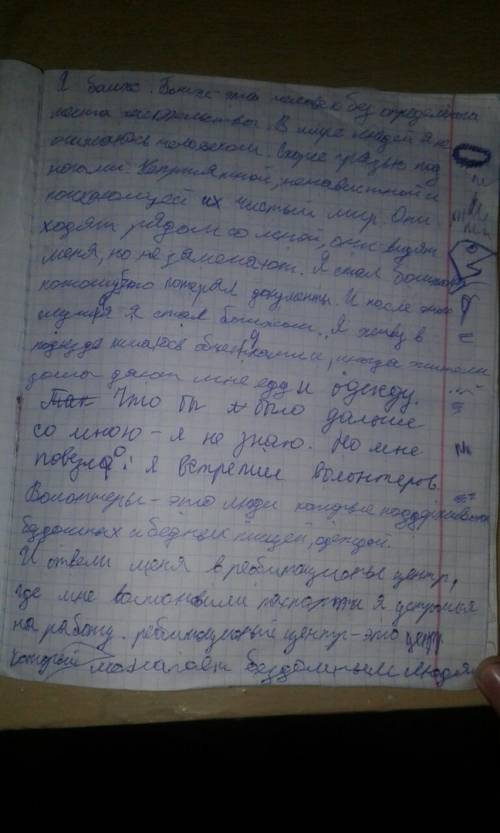 Я бомж. Бомж - это человек без определённа
места жительства. В мире людей я не
считаюсь человеком. Скорее грязью под
ногами. Неприятной, ненавистной и
их чистый мир. Они
ходят рядом со мной, они видят
меня, но не замечают. Я стал бомжом
потому что потерял документы. И после этого
я стал бомжом. Я живу в
подъезде питаюсь объедками, иногда жители
дома дают мне еду и одежду.
Что бы было дальше
со мною - я не знаю. Но мне
повезло: я встретил волонтеров.
Волонтеры - это люди которые поддерживают
бездомных и бедных пищей, одеждой.
И отвели меня в реблитационые центр,
где мне востановили паспорт и я устроился
на работу. реблитационый центр - это центр
который помогает бездомным людя